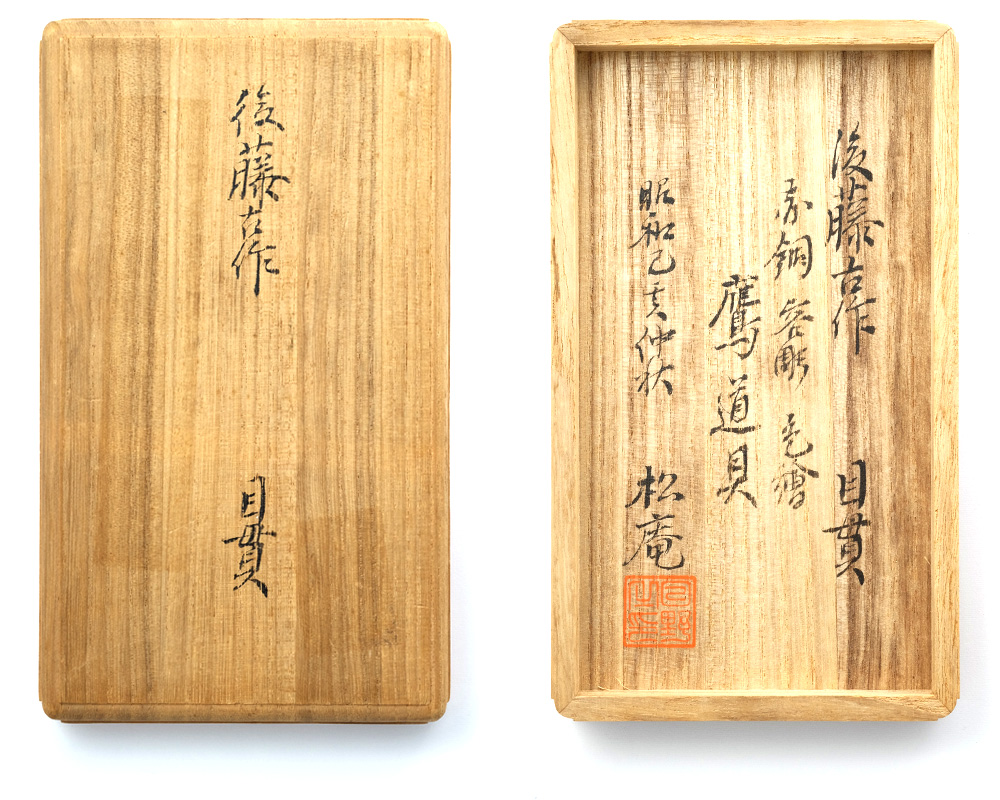 後藤古作 目貫
後藤古作 目貫
赤銅 容彫 色繪
鷹道具
昭和己亥仲秋 松庵